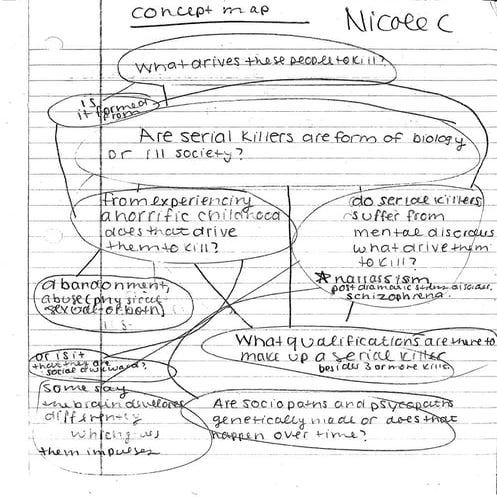 concept map
Nicole C
What drives these people to kill?
is
it formed
from
Are serial killers are form of biology
or ill society?
from experiencing
a horrific childhood
does that drive
them to kill?
do serial killers
suffer from
mental disorders
what drive them
to kill?
* narrassism
post dramatic stress disorder,
schizophrena.
abandonment,
abuse (physical
sexual or both)
What qualifications are there to
make up a serial killer
besides 3 or more kills
or is it
that they are
social awkward?
some say
the brain develops
differently
which
them impulses
Are sociopaths and psycopaths
genetically made or does that
happen over time?